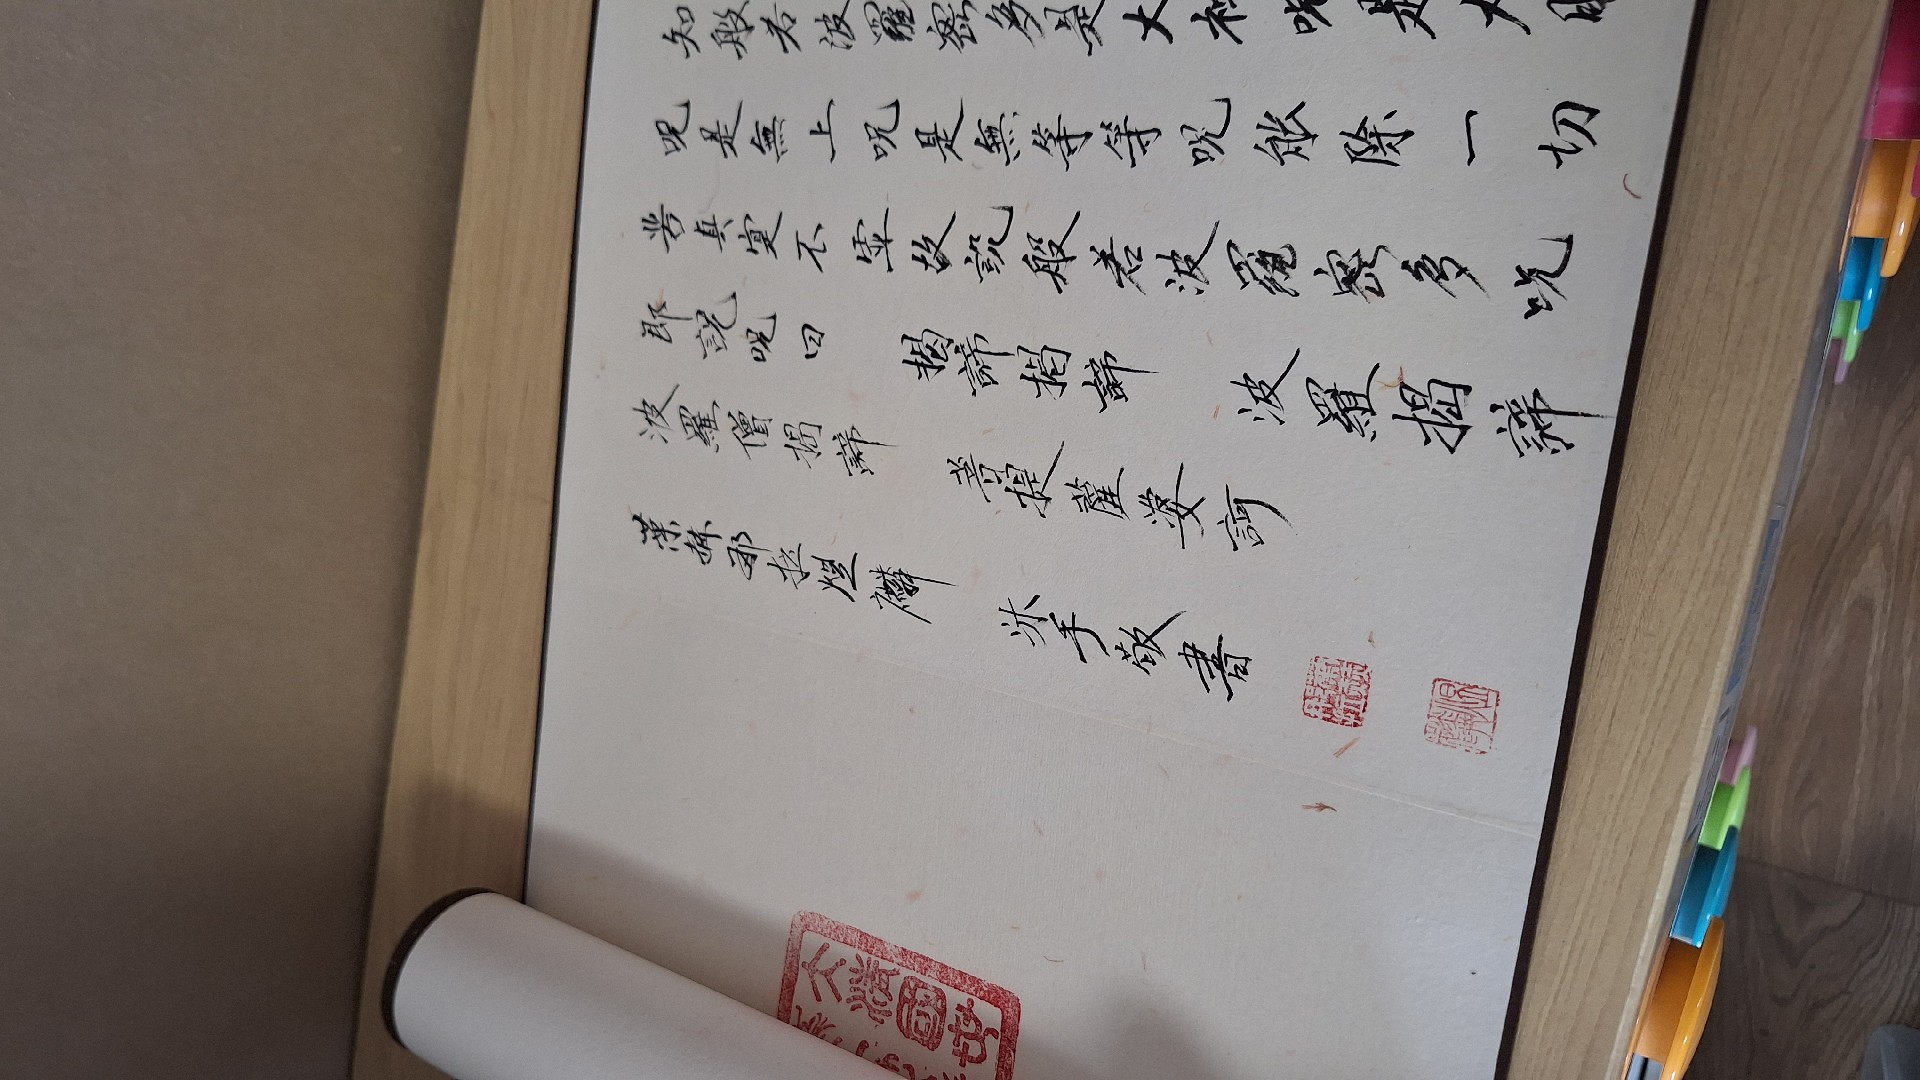 知般若波羅蜜多是大神呪是大明
呪是無上呪是無等等呪能除一切
苦真實不虛故說般若波羅蜜多呪
即說呪曰 揭諦揭諦 波羅揭諦
波羅僧揭諦 菩提薩婆訶
葉赫那拉 沐手敬書